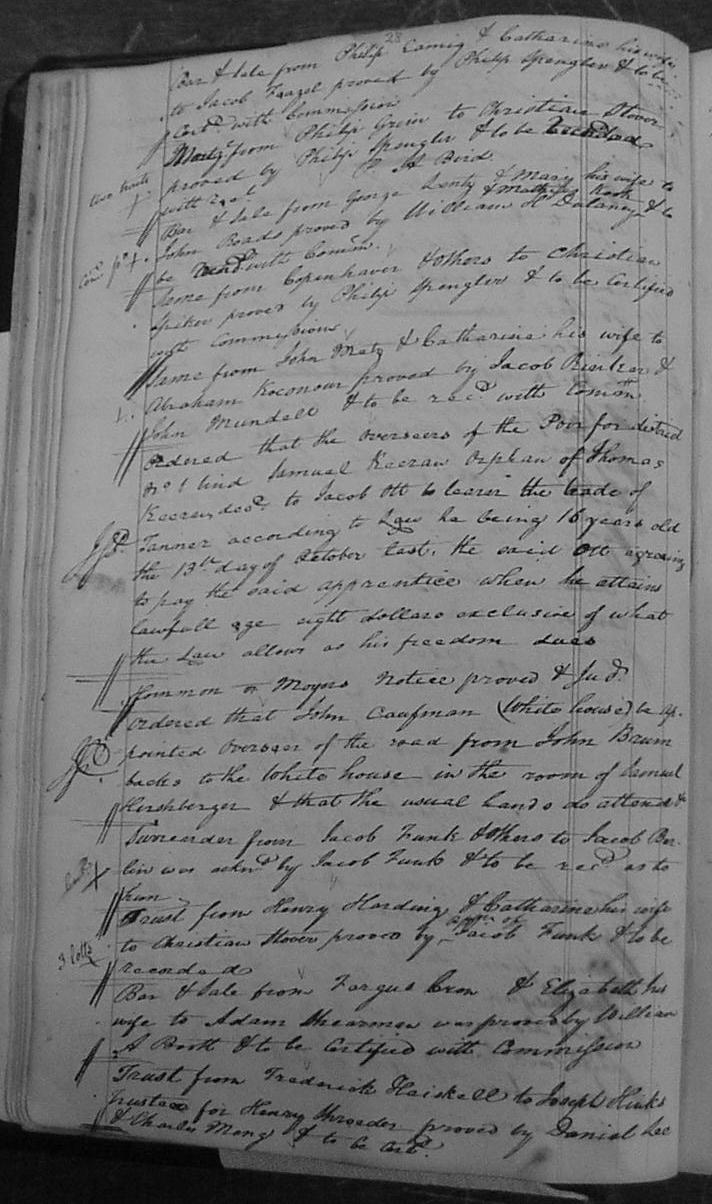 28
Bar & Sale from Philip Comig & Catharine his wife
to Jacob Feagel proved by Philip Spengler & to be
Cert.d with Commission
Mortg.e from Philip Grim to Christian Stover
proved by Philip Spengler & to be Recorded
two tracts
with R A Bird
Bar & Sale from George Lentz & Mary his wife to
John Roads proved by William H Dulaney & Mathias Rook & to
be Recd with Comm.
Same from Copenhaver & others to Christian
Spiker proved by Philip Spengler & to be Certified
with Commissions
Same from John Matz & Catharine his wife to
Abraham Koconour proved by Jacob Rinker &
John Mundell & to be rec.d with Comm
Ordered that the overseers of the Poor for district
No 1 bind Samuel Keeran Orphan of Thomas
Keeran, dec.d to Jacob Ott to learn the trade of
Tanner according to Law he being 16 years old
the 13th day of October last. the said Ott agreeing
to pay the said apprentice when he attains
lawfull age eight dollars exclusive of what
the Law allows as his freedom dues
Hommon vs Moyers Notice proved & Jud.
Ordered that John Caufman (White house) be ap-
pointed Overseer of the road from John Brum
backs to the White house in the room of Samuel
Hershberger & that the usual hands do attend &c
Surrender from Jacob Funk & others to Jacob Bur-
lin was ackn.d by Jacob Funk & to be rec.d as to
him
Trust from Henry Harding & Catharine his wife
to Christian Stover proved by Jacob Funk & to be
3 lotts
recorded
Bar & Sale from Fargus Cron & Elizabeth his
wife to Adam Shearman was proved by William
A Booth & to be Certified with Commission
Trust from Frederick Heiskell to Joseph Hinks
trustee for Henry Shroeder proved by Daniel Lee
& Charles Mong & to be cert.d